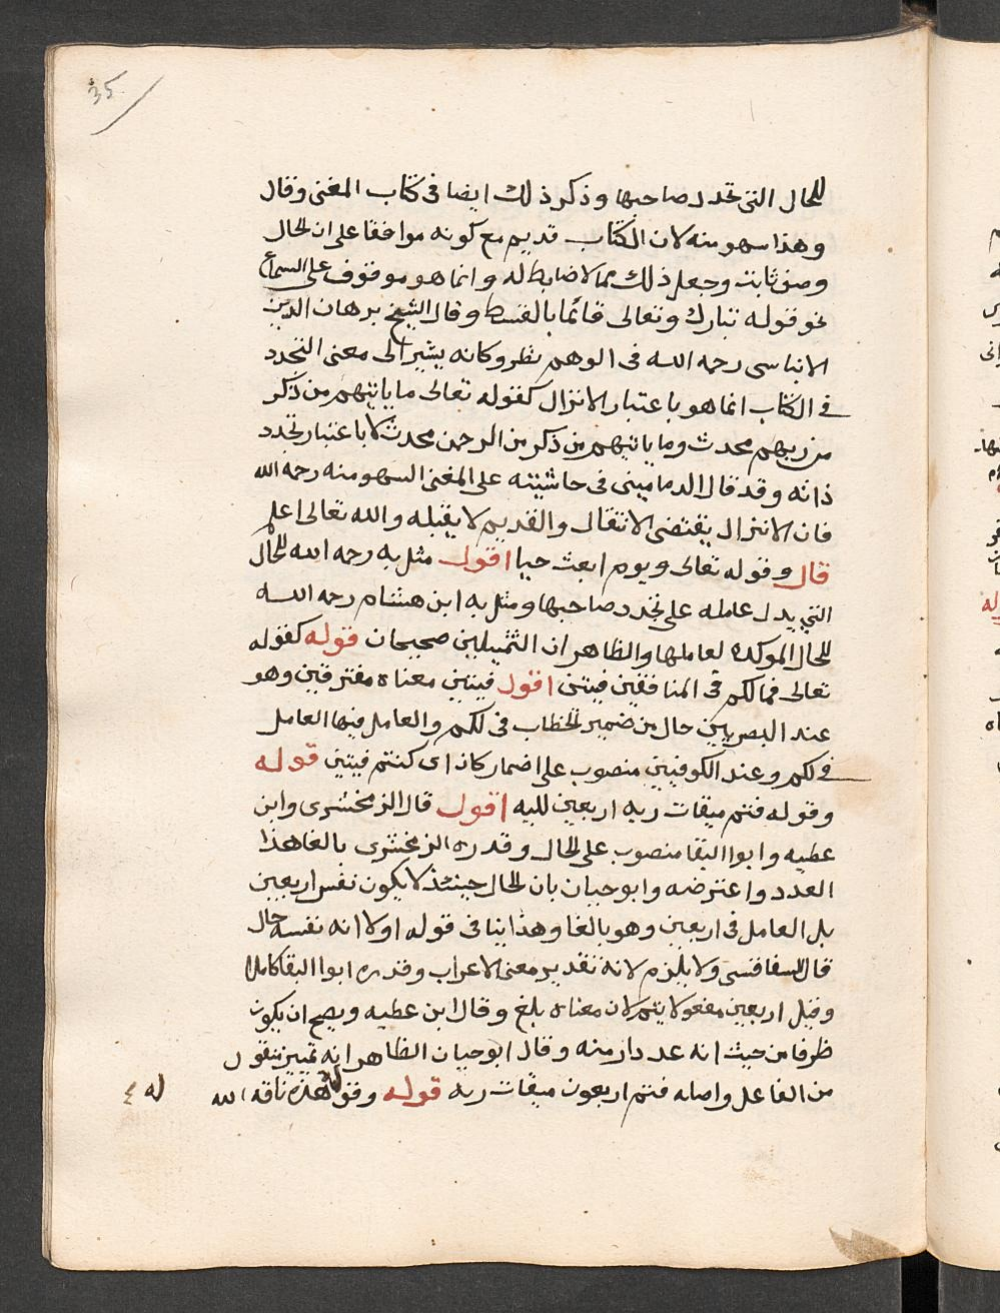 35
للحال التى تجدد صاحبها وذكر ذلك ايضا فى كتاب المغنى وقال
وهذا سهو منه لان الكتاب قديم مع كونه موافقا على ان الحال
وصف ثابت وجعل ذلك مما لا ضابط له وانما هو موقوف على السماع
نحو قوله تبارك وتعالى قائما بالقسط وقال الشيخ برهان الدين
الابناسى رحمه الله فى الوهم نظر وكانه يشير الى معنى التجدد
فى الكتاب انما هو باعتبار الانزال كقوله تعالى ما ياتيهم من ذكر
من ربهم محدث وما ياتيهم من ذكر من الرحمن محدث لا باعتبار تجدد
ذاته وقد قال الدمامينى فى حاشيته على المغنى السهو منه رحمه الله
فان الانزال يقتضى الانتقال والقديم لا يقبله والله تعالى اعلم
قال وقوله تعالى ويوم ابعث حيا اقول مثل به رحمه الله للحال
التى يدل عامله على تجدد صاحبها ومثل به ابن هشام رحمه الله
للحال الموكده لعاملها والظاهر ان التمثيلين صحيحان قوله كقوله
تعالى فما لكم فى المنافقين فيتين اقول فيتين معناه مفترقين وهو
عند البصريين حال من ضمير الخطاب فى لكم والعامل فيها العامل
فى لكم وعند الكوفيين منصوب على اضمار كان اى كنتم فيتين قوله
وقوله فتم ميقات ربه اربعين لليه اقول قال الزمخشرى وابن
عطيه وابوا البقا منصوب على الحال وقدره الزمخشرى بالغا هذا
العدد واعترضه وابو حيان بان الحال حينئذ لا يكون نفس اربعين
بل العامل فى اربعين وهو بالغا وهذا ينافى قوله اولا انه نفسه حال
قال السفاقسى ولا يلزم لانه تقدير معنى لا اعراب وقدره ابوا البقا كامله
وقيل اربعين مفعولا يتم لان معناه بلغ وقال ابن عطيه ويصح ان يكون
ظرفا من حيث انه عدد ازمنه وقال ابو حيان الظاهر انه تمييز منقول
من الفاعل واصله فتم اربعون ميقات ربه قوله وقوله هذه ناقة الله
له